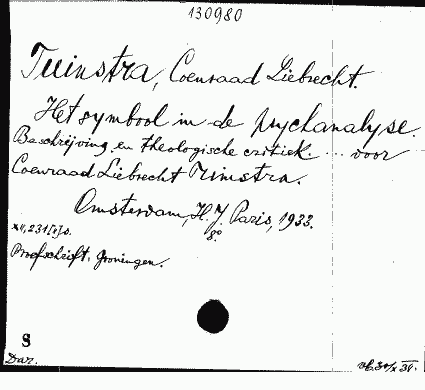 130980
Tuinstra, Coenraad Liebrecht.
Het symbool in de psychanalyse.
Beschrijving en theologische critiek ... voor
Coenraad Liebrecht Tuinstra.
Amsterdam, H. J. Paris, 1933.
8º
XII, 231 [1] s.
Proefschrift, Groningen.
S